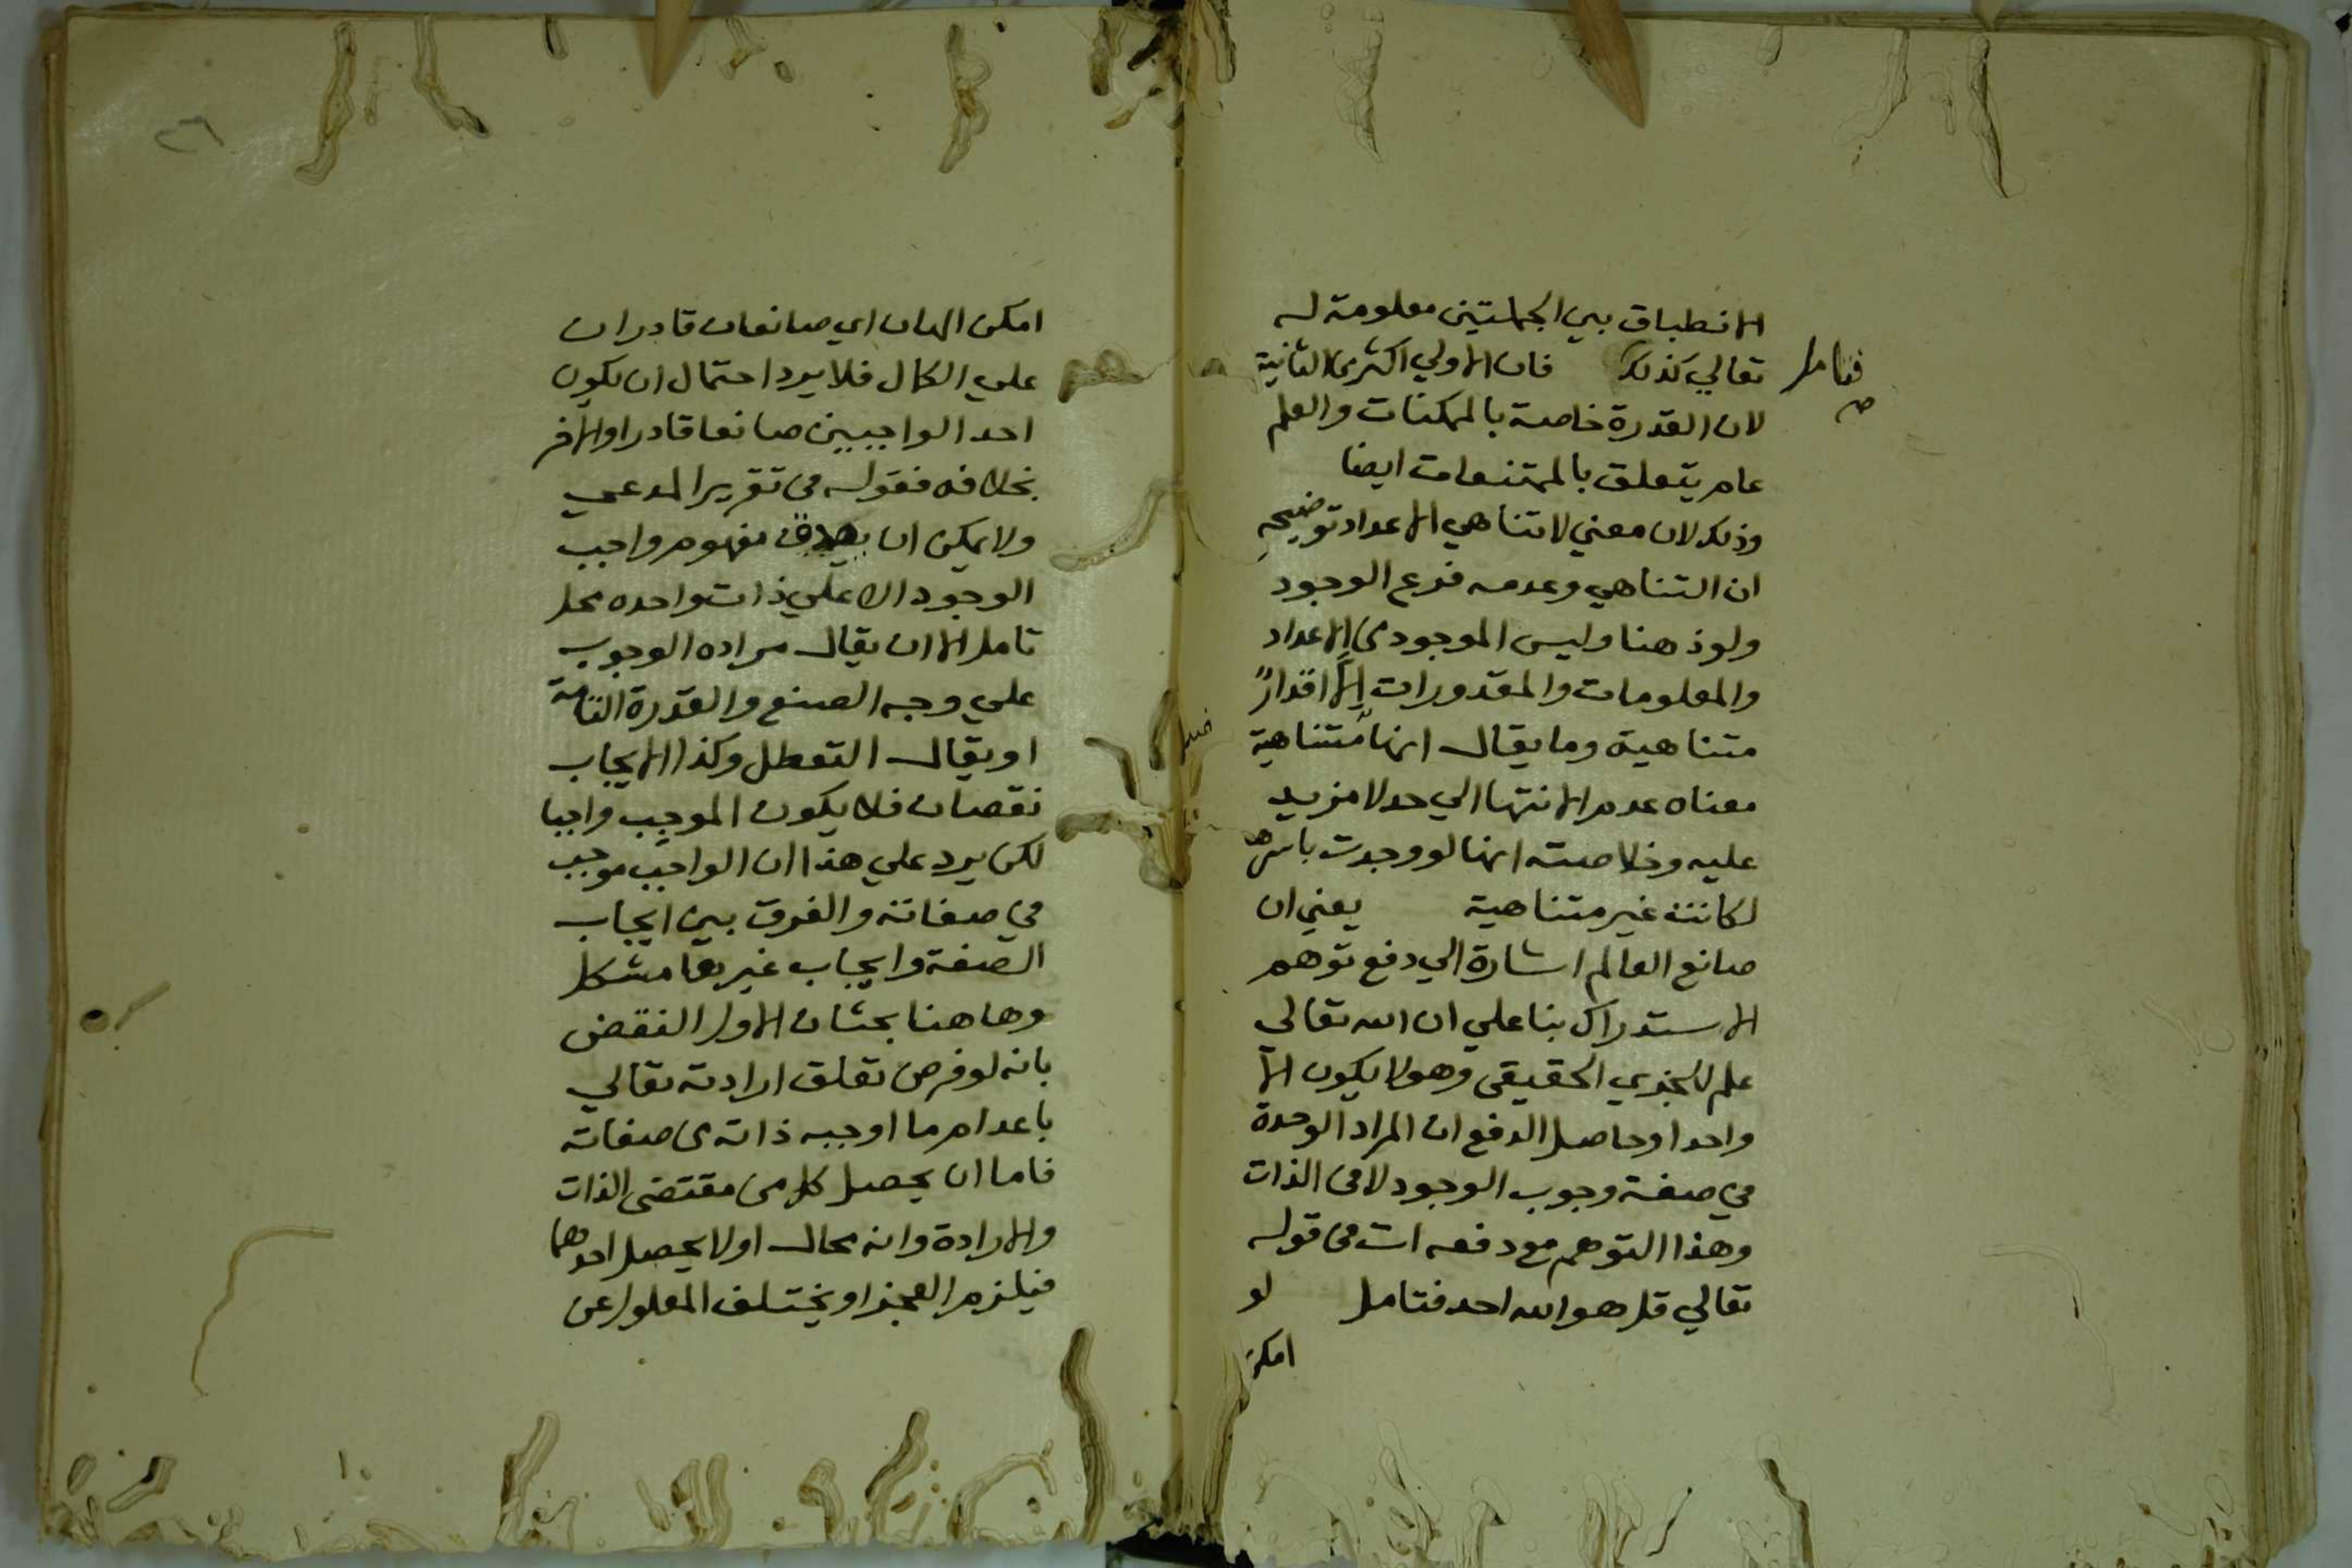 الانطباق بين الجملتين معلومة له
تعالي كذلك فان الاولي اكثر من الثانية
فتامل
صح
لان القدرة خاصة بالممكنات والعلم
عام يتعلق بالممتنعات ايضا
وذلك لان معني لا تناهي الاعداد توضيحه
ان التناهي وعدمه فرع الوجود
ولو ذهنا وليس الموجود من الاعداد
والمعلومات والمقدورات الا اقدارا
متناهية وما يقال انها متناهية
معناه عدم الانتها الي حد لا مزيد
عليه وخلاصته انها لو وجدت باسرها
لكانت غير متناهية يعني ان
صانع العالم اشارة الي دفع توهم
الاستدراك بنا علي ان الله تعالي
علم للجزي الحقيقي وهو لا يكون الا
واحدا وحاصل الدفع ان المراد الوحدة
في صفة وجوب الوجود لا في الذات
وهذا التوهم مع دفعه ات في قوله
تعالي قل هو الله احد فتامل لو
امكن
٢٦
امكن الهان اي صانعان قادران
علي الكال فلا يرد احتمال ان يكون
احد الواجبين صانعا قادرا والاخر
بخلافه فقوله في تقرير المدعي
ولا يمكن ان يصدق مفهوم واجب
الوجود الا علي ذات واحده محل
تامل الا ان يقال مراده الوجوب
علي وجه الصنع والقدرة التامة
او يقال التعطل وكذا الايجاب
نقصان فلا يكون الموجب واجبا
لكن يرد علي هذا ان الواجب موجب
في صفاته والفرق بين ايجاب
الصفة وايجاب غيرها مشكل
وهاهنا بحثان الاول النقض
بانه لو فرض تعلق ارادته تعالي
باعدام ما اوجبه ذاته من صفاته
فاما ان يحصل كل من مقتضى الذات
والارادة وانه محال اولا يحصل احدهما
فيلزم العجز او يختلف المعلول عن